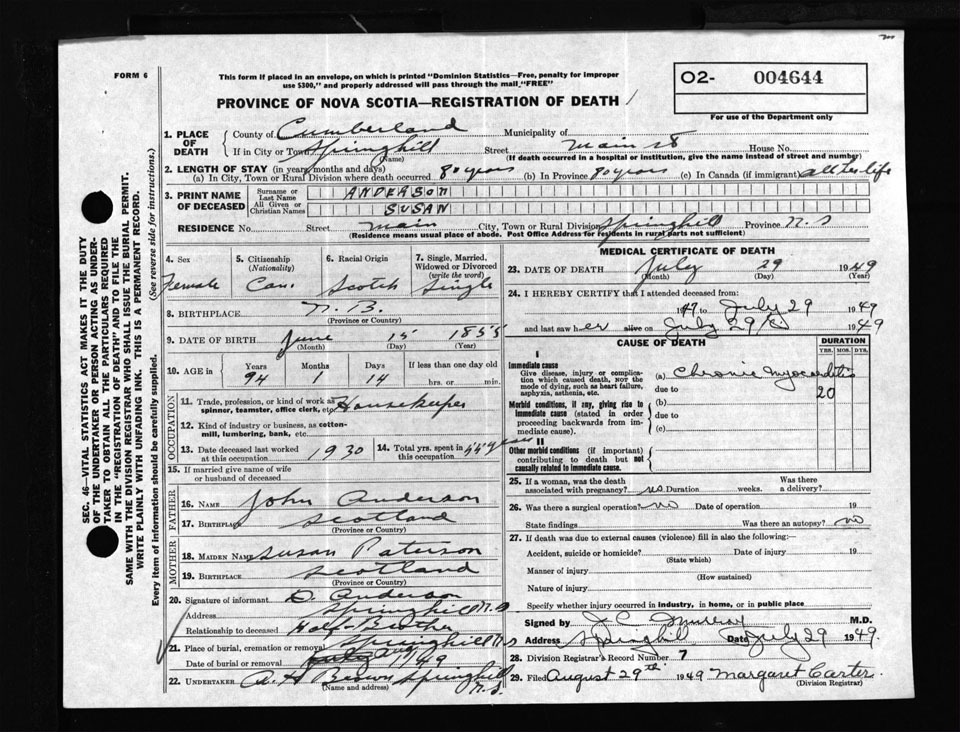 FORM 6
This form if placed in an envelope, on which is printed "Dominion Statistics—Free, penalty for improper
use $300," and properly addressed will pass through the mail "FREE"
O2- 004644
For use of the Department only
PROVINCE OF NOVA SCOTIA—REGISTRATION OF DEATH
1. PLACE OF DEATH
County of Cumberland Municipality of
If in City or Town Springhill Street Main St House No.
(Name) (If death occurred in a hospital or institution, give the name instead of street and number)
2. LENGTH OF STAY (in years, months and days)
(a) In City, Town or Rural Division where death occurred 80 years (b) In Province 90 years (c) In Canada (if immigrant) all her life
3. PRINT NAME OF DECEASED
Surname or Last Name ANDERSON
All Given or Christian Names SUSAN
RESIDENCE No. Street Main City, Town or Rural Division Springhill Province N.S
(Residence means usual place of abode. Post Office Address for residents in rural parts not sufficient)
4. Sex Female
5. Citizenship (Nationality) Can.
6. Racial Origin Scotch
7. Single, Married, Widowed or Divorced (write the word) Single
8. BIRTHPLACE N.B.
(Province or Country)
9. DATE OF BIRTH June 15 1855
(Month) (Day) (Year)
10. AGE in Years 94 Months 1 Days 14 If less than one day old hrs. or min.
OCCUPATION
11. Trade, profession, or kind of work as spinner, teamster, office clerk, etc. Housekeeper
12. Kind of industry or business, as cotton-mill, lumbering, bank, etc.
13. Date deceased last worked at this occupation 1930
14. Total yrs. spent in this occupation 55 years
15. If married give name of wife or husband of deceased
FATHER
16. NAME John Anderson
17. BIRTHPLACE Scotland
(Province or Country)
MOTHER
18. MAIDEN NAME Susan Paterson
19. BIRTHPLACE Scotland
(Province or Country)
20. Signature of informant D. Anderson
Address Springhill N.S
Relationship to deceased Half-Brother
21. Place of burial, cremation or removal Springhill N S
Date of burial or removal July Aug 1 1949
22. UNDERTAKER A H Brown Springhill N.S.
(Name and address)
MEDICAL CERTIFICATE OF DEATH
23. DATE OF DEATH July 29 1949
(Month) (Day) (Year)
24. I HEREBY CERTIFY that I attended deceased from:
1947 to July 29 1949
and last saw her alive on July 29 1949
CAUSE OF DEATH
DURATION
YRS. MOS. DYS.
I
Immediate cause
Give disease, injury or complication which caused death, NOT the mode of dying, such as heart failure, asphyxia, asthenia, etc.
(a) Chronic Myocarditis 20
due to
Morbid conditions, if any, giving rise to immediate cause (stated in order proceeding backwards from immediate cause).
(b)
due to
(c)
II
Other morbid conditions (if important) contributing to death but not causally related to immediate cause.
25. If a woman, was the death associated with pregnancy? no Duration weeks. Was there a delivery?
26. Was there a surgical operation? no Date of operation 19
State findings Was there an autopsy? no
27. If death was due to external causes (violence) fill in also the following:—
Accident, suicide or homicide? Date of injury 19
(State which)
Manner of injury
(How sustained)
Nature of injury
Specify whether injury occurred in industry, in home, or in public place
Signed by J. C. Murray M.D.
Address Springhill Date July 29 1949.
28. Division Registrar's Record Number 7
29. Filed August 29th 1949 Margaret Carter
(Division Registrar)
SEC. 46—VITAL STATISTICS ACT MAKES IT THE DUTY
OF THE UNDERTAKER OR PERSON ACTING AS UNDER-
TAKER TO OBTAIN ALL THE PARTICULARS REQUIRED
IN THE "REGISTRATION OF DEATH" AND TO FILE THE
SAME WITH THE DIVISION REGISTRAR WHO SHALL ISSUE THE BURIAL PERMIT.
WRITE PLAINLY WITH UNFADING INK. THIS IS A PERMANENT RECORD.
Every item of information should be carefully supplied. (See reverse side for instructions.)